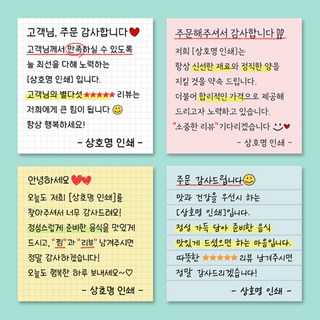 고객님, 주문 감사합니다❤
고객님께서 만족하실 수 있도록
늘 최선을 다해 노력하는
[상호명 인쇄] 입니다.
고객님의 별다섯 ★★★★★ 리뷰는
저희에게 큰 힘이 됩니다 😊
항상 행복하세요!
- 상호명 인쇄 -
주문해주셔서 감사합니다 !!
저희 [상호명 인쇄]는
항상 신선한 재료와 정직한 양을
지킬 것을 약속 드립니다.
더불어 합리적인 가격으로 제공해
드리고자 노력하고 있습니다.
"소중한 리뷰" 기다리겠습니다 ☺♥
- 상호명 인쇄 -
안녕하세요 ❤❤
오늘도 저희 [상호명 인쇄]를
찾아주셔서 너무 감사드려요!
정성스럽게 준비한 음식을 맛있게
드시고, "찜"과 "리뷰" 남겨주시면
정말 감사하겠습니다!
오늘도 행복한 하루 보내세요~♡
- 상호명 인쇄 -
주문 감사드립니다😊
맛과 건강을 우선시 하는
[상호명 인쇄]입니다.
정성 가득 담아 준비한 음식
맛있게 드셨으면 하는 마음입니다.
따뜻한 ★★★★★ 리뷰 남겨주시면
정말 감사드리겠습니다!
- 상호명 인쇄 -